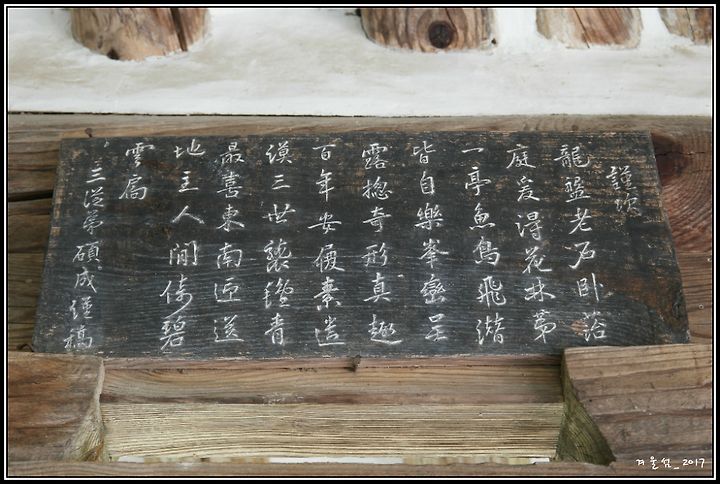 謹次
龍盤老石臥菭
庭爰得花林第
一亭魚鳥飛潛
皆自樂峯巒呈
露揔奇形真趣
百年安儉素遺
謨三世襲青
最喜東南迎送
地主人間倚碧
雲扃
三從弟碩成謹稿
겨울섬_2017